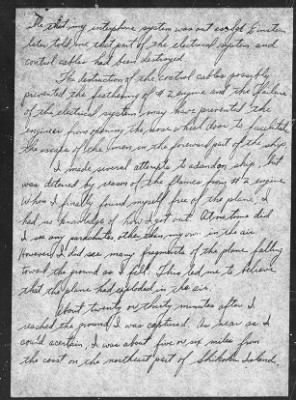 that my interphone system was out and Lt Einstein
later told me that part of the electrical system and
control cables had been destroyed.
The destruction of the control cables possibly
prevented the feathering of #2 engine and the failure
of the electrical system may have prevented the
engineer from opening the nose wheel door to facilitate
the escape of the men in the forward part of the ship.
I made several attempts to abandon ship but
was deterred by reason of the flames from #2 engine.
When I finally found myself free of the plane, I
had no knowledge of how I got out. At no time did
I see any parachutes other than my own in the air.
However I did see many fragments of the plane falling
toward the ground as I fell. This led me to believe
that the plane had exploded in the air.
About twenty or thirty minutes after I
reached the ground, I was captured. As near as I
could acertain, I was about five or six miles from
the coast on the northeast part of Shikoku Island.